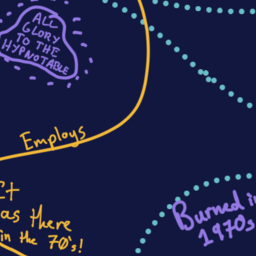 ALL
GLORY
TO THE
HYPNOTABLE
Employs
was there
in the 70's!
Burned in
1970s